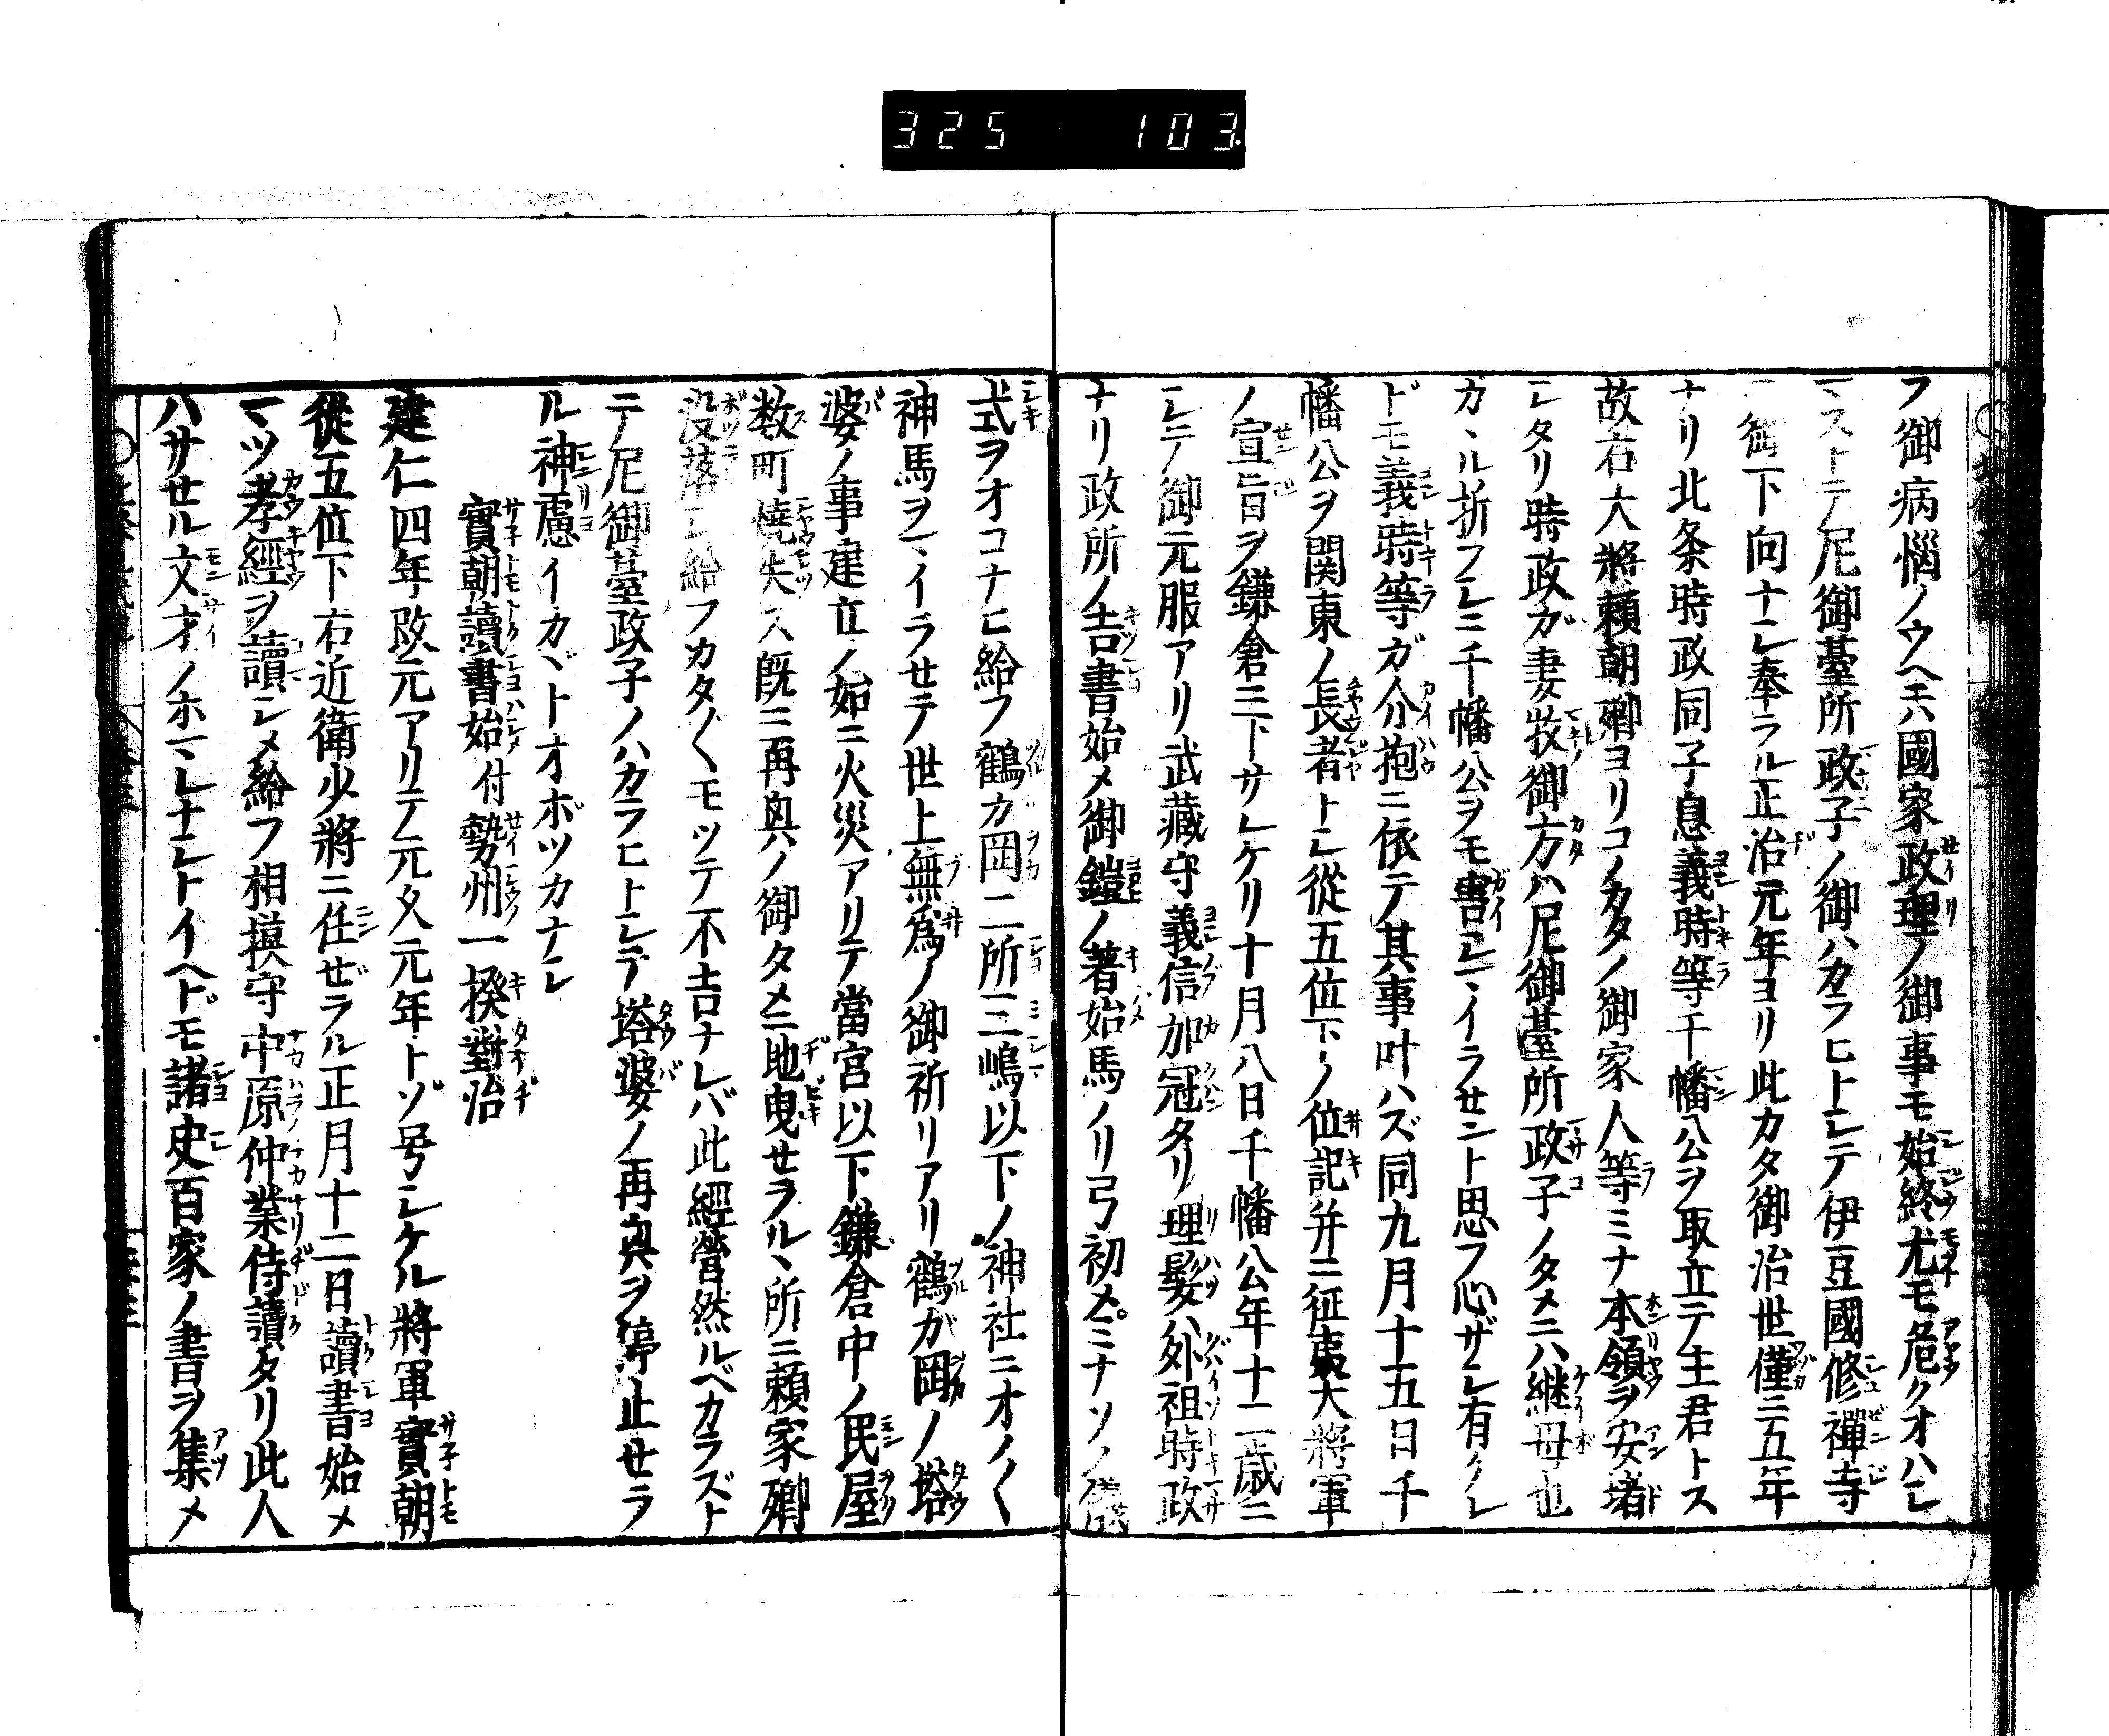 325 103
フ御病悩ノウヘモハ國家政理ノ御事モ始終尤モ危クオハシ
マストテ尼御臺所政子ノ御ハカラヒトシテ伊豆國修禪寺
ニ御下向ナシ奉ラル正治元年ヨリ此カタ御治世僅ニ五年
ナリ北条時政同子息義時等千幡公ヲ取立テ主君トス
故右大將頼朝卿ヨリコノカタノ御家人等ミナ本領ヲ安堵
シタリ時政ガ妻牧御方ハ尼御臺所政子ノタメニハ継母也
カヽル折フシニ千幡公ヲモ害シマイラセント思フ心ザシ有ケレ
ドモ義時等ガ介抱ニ依テ其事叶ハズ同九月十五日千
幡公ヲ関東ノ長者トシ從五位下ノ位記并ニ征夷大將軍
ノ宣旨ヲ鎌倉ニ下サレケリ十月八日千幡公年十二歳ニ
シテ御元服アリ武藏守義信加冠タリ理髮ハ外祖時政
ナリ政所ノ吉書始メ御鎧ノ著始馬ノリ弓初メミナソノ儀
式ヲオコナヒ給フ鶴カ岡二所三嶋以下ノ神社ニオノ〱
神馬ヲマイラセテ世上無爲ノ御祈リアリ鶴が岡ノ塔
婆ノ事建立ノ始ニ火災アリテ當宮以下鎌倉中ノ民屋
数町燒失ス既ニ再興ノ御タメニ地曳セラルヽ所ニ頼家卿
没落シ給フカタ〱モツテ不吉ナレバ此經營然ルベカラズト
テ尼御臺政子ノハカラヒトシテ塔婆ノ再興ヲ停止セラ
ル神慮イカヾトオボツカナシ
實朝讀書始付勢州一揆對治
建仁四年改元アリテ元久元年トゾ号シケル將軍實朝
從五位下右近衛少將ニ任ぜラル正月十二日讀書始メ
マヅ孝經ヲ讀シメ給フ相摸守中原仲業侍讀タリ此人
ハサせル文才ノホマレナシトイヘドモ諸史百家ノ書ヲ集メ